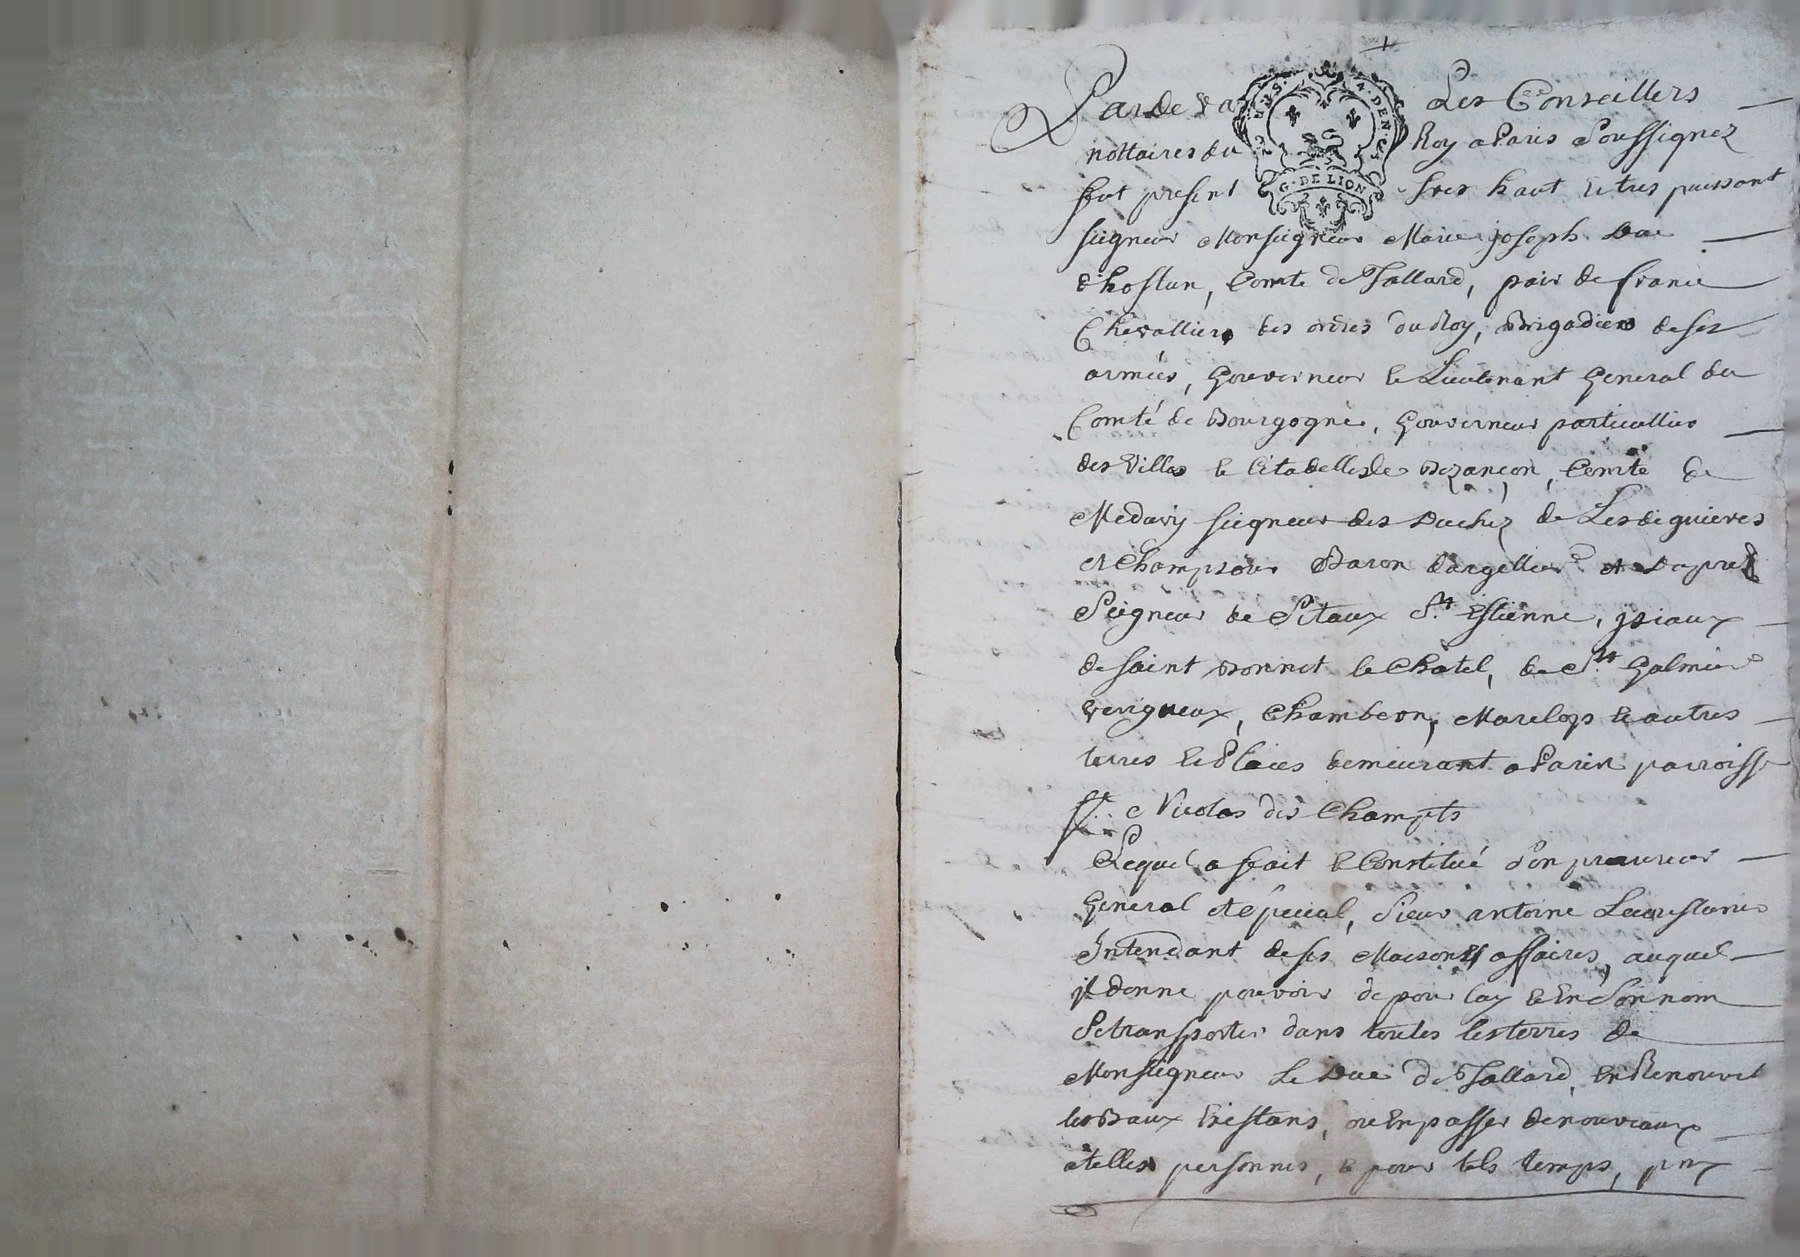 Pardeva Les Conseillers
nottaires du Roy a Paris Soussignez
G. DE LION
fut present tres haut et tres puissant
seigneur Monseigneur Marie joseph Duc
d'hostun, Comte de Tallard, pair de france
Chevallier des ordres du Roy, Brigadier de ses
armées, Gouverneur et Lieutenant General du
Comté de Bourgogne, Gouverneur particullier
des Villes et Citadelles de Bezançon, Comte de
Medavy seigneur des Duchez de Lesdiguieres
et Champsaur Baron
Seigneur de St. Estienne,
de saint Bonnet le Chatel, de St Galmier
verigneux, Chambeon, Marclop et autres
terres et places demeurant a Paris parroisse
St. Nicolas des Champts
Lequel a fait et Constitué son procureur
General et special, Sieur antoine
Intendant de ses Maison et affaires, auquel
il donne pouvoir de pour luy et En son nom
se transporter dans toutes les terres de
Monseigneur Le Duc de Tallard, En Renouvel
les Baux Existans, ou En passer de nouveaux
a telles personnes, et pour tels temps, prix